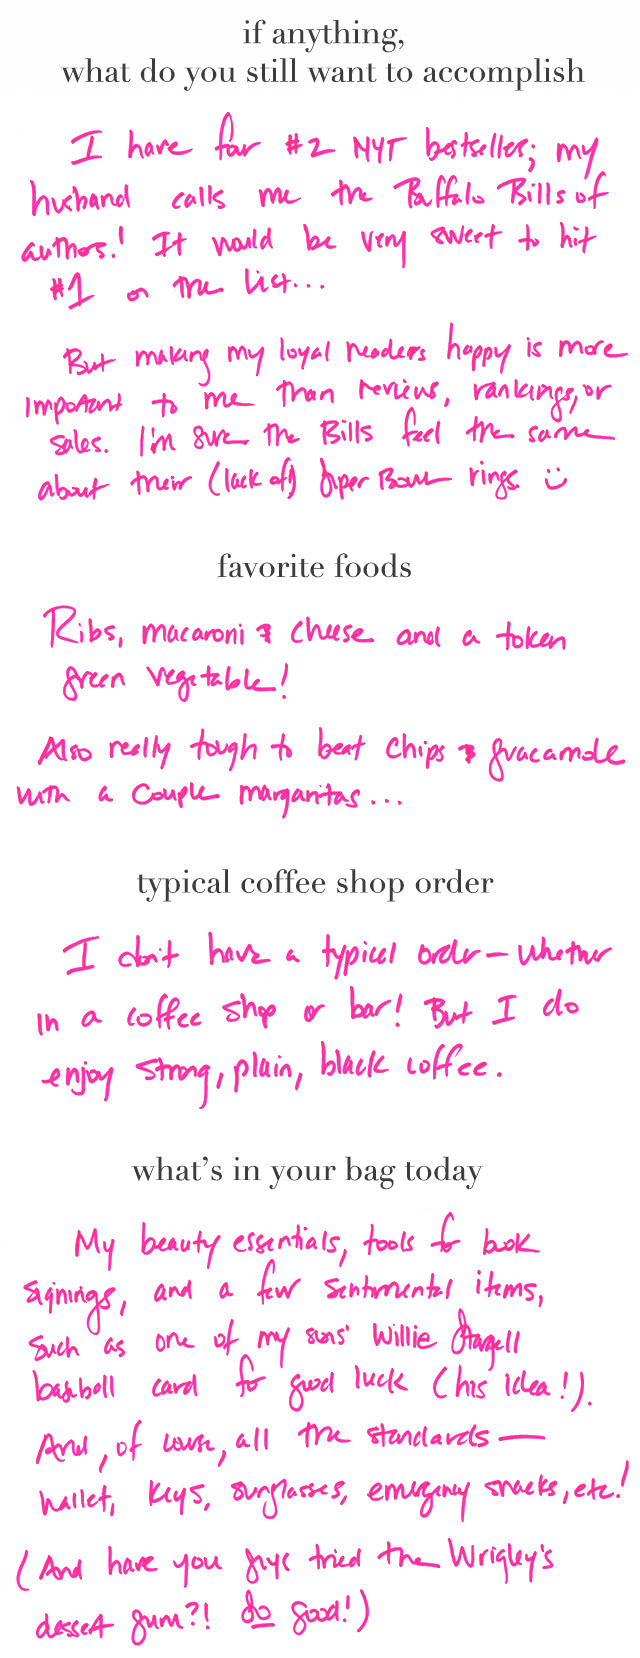 if anything,
what do you still want to accomplish
I have four #2 NYT bestsellers; my
husband calls me the Buffalo Bills of
authors! It would be very sweet to hit
#1 on the list...
But making my loyal readers happy is more
important to me than reviews, rankings, or
sales. I'm sure the Bills feel the same
about their (lack of) Super Bowl rings :)
favorite foods
Ribs, macaroni & cheese and a token
green vegetable!
Also really tough to beat chips & guacamole
with a couple margaritas...
typical coffee shop order
I don't have a typical order – whether
in a coffee shop or bar! But I do
enjoy strong, plain, black coffee.
what's in your bag today
My beauty essentials, tools for book
signings, and a few sentimental items,
such as one of my sons' Willie Stargell
baseball card for good luck (his idea!).
And, of course, all the standards —
wallet, keys, sunglasses, emergency snacks, etc!
(And have you guys tried the Wrigley's
dessert gum?! So good!)